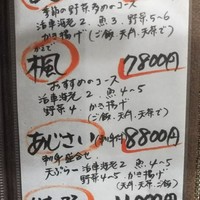 季節の野菜多めのコース
活車海老2、魚3、野菜5~6
かき揚げ(ご飯、天丼、天茶で)
かえで
楓 7800円
おすすめのコース
活車海老2 魚4~5
野菜4 かき揚げ
(ご飯、天丼、天茶で)
あじさい 8800円
天ぷら→活車海老2 魚4~5
野菜4~5 かき揚げ
(天丼、天茶、ご飯)